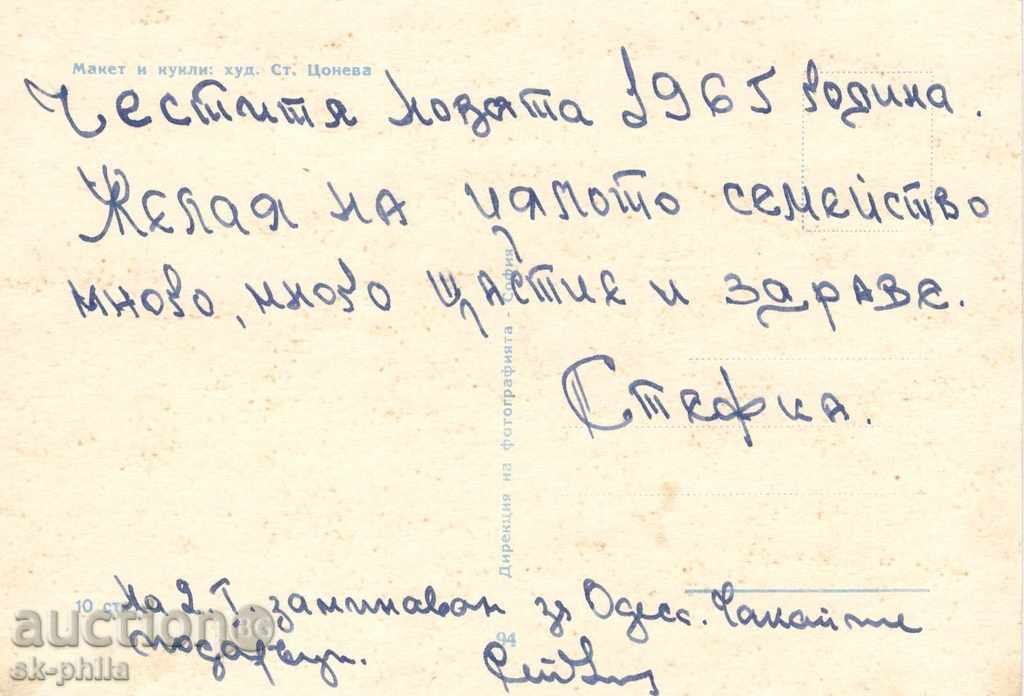 Макет и кукли: худ. Ст. Цонева
Честитя новата 1965 година.
Желая на цялото семейство
много, много щастие и здраве.
Стефка.
Дирекция на фотографията - София
10 ст
На 2.I. заминавам за Одес. Чакайте
с подаръци.
94
auction.BG
sk-phila